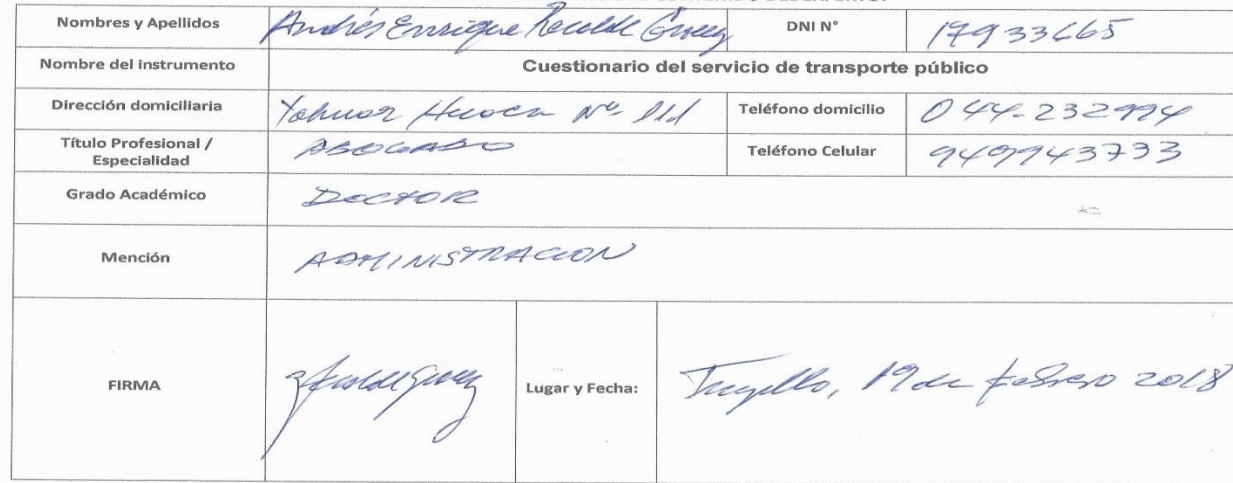 Nombres y Apellidos Andrés Enrique Recalde Gracey DNI N° 17933665
Nombre del instrumento Cuestionario del servicio de transporte público
Dirección domiciliaria Yahuar Huaca Nº Teléfono domicilio 044-232994
Título Profesional / Especialidad ABOGADO Teléfono Celular 949943733
Grado Académico DOCTOR
Mención ADMINISTRACION
FIRMA Lugar y Fecha: Trujillo, 19 de febrero 2018